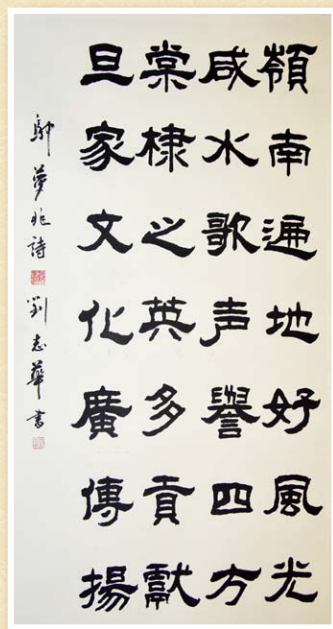 嶺南遍地好風光
咸水歌声譽四方
棠棣之英多貢獻
旦家文化廣傳揚
鄔夢兆詩 劉志華書